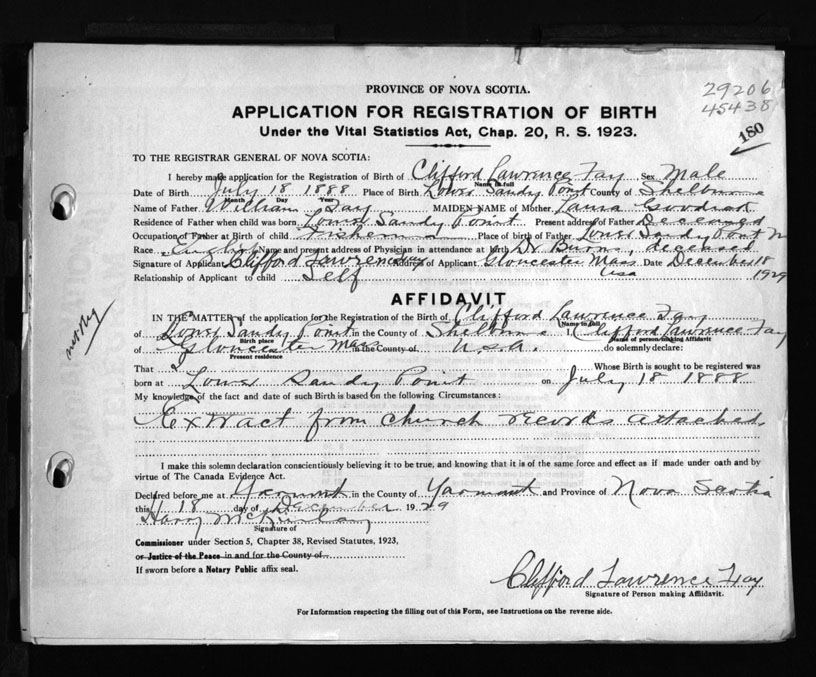 PROVINCE OF NOVA SCOTIA.
29206
45438
180
APPLICATION FOR REGISTRATION OF BIRTH
Under the Vital Statistics Act, Chap. 20, R. S. 1923.
TO THE REGISTRAR GENERAL OF NOVA SCOTIA:
I hereby make application for the Registration of Birth of Clifford Lawrence Fay Sex Male
Name in full
Date of Birth July 18 1888 Place of Birth Lower Sandy Point County of Shelburne
Month Day Year
Name of Father William Fay MAIDEN NAME of Mother Laura Goodick
Residence of Father when child was born Lower Sandy Point Present address of Father Deceased
Occupation of Father at Birth of child Fisherman Place of birth of Father Lower Sandy Point N
Race English Name and present address of Physician in attendance at birth Dr Burns, deceased
Signature of Applicant Clifford Lawrence Fay Address of Applicant Gloucester Mass Date December 18
Relationship of Applicant to child Self USA 1929
AFFIDAVIT
IN THE MATTER of the application for the Registration of the Birth of Clifford Lawrence Fay
(Name in full)
of Lower Sandy Point in the County of Shelburne I, Clifford Lawrence Fay
Birth place Name of person making Affidavit
of Gloucester Mass in the County of U.S.A. do solemnly declare:
Present residence
That I Whose Birth is sought to be registered was
born at Lower Sandy Point on July 18 1888
My knowledge of the fact and date of such Birth is based on the following Circumstances:
Extract from church records attached.
I make this solemn declaration conscientiously believing it to be true, and knowing that it is of the same force and effect as if made under oath and by
virtue of The Canada Evidence Act.
Declared before me at Yarmouth in the County of Yarmouth and Province of Nova Scotia
this 18 day of December 1929
Harry
Signature of
Commissioner under Section 5, Chapter 38, Revised Statutes, 1923,
or Justice of the Peace in and for the County of
If sworn before a Notary Public affix seal.
Clifford Lawrence Fay
Signature of Person making Affidavit.
For Information respecting the filling out of this Form, see Instructions on the reverse side.